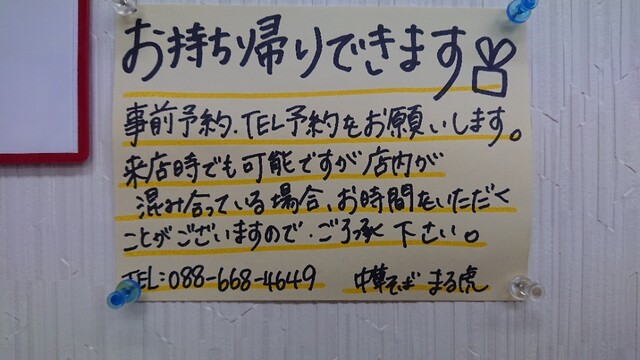 お持ち帰りできます
事前予約.TEL予約をお願いします。
来店時でも可能ですが店内が
混み合っている場合、お時間をいただく
ことがございますので.ご了承下さい。
TEL:088-668-4649 中華そば まる虎